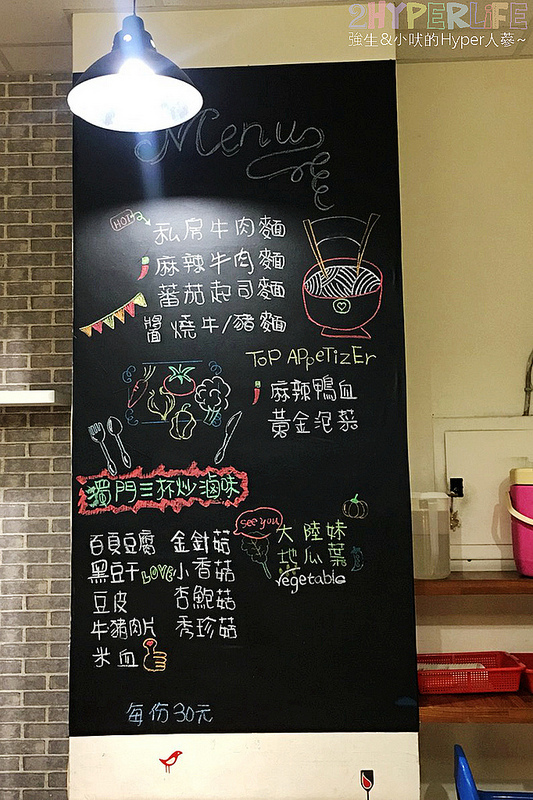 2HYPERLiFE
強生&小吠的Hyper人蔘~
Menu
HOT
私房牛肉麵
麻辣牛肉麵
蕃茄起司麵
醬燒牛/豬麵
ToP APPeTiZEr
麻辣鴨血
黃金泡菜
獨門三杯炒滷味
百頁豆腐 金針菇
黑豆干 LOVE 小香菇
豆皮 杏鮑菇
牛豬肉片 秀珍菇
米血
see you
大陸妹
地瓜葉
vegetable
每份30元